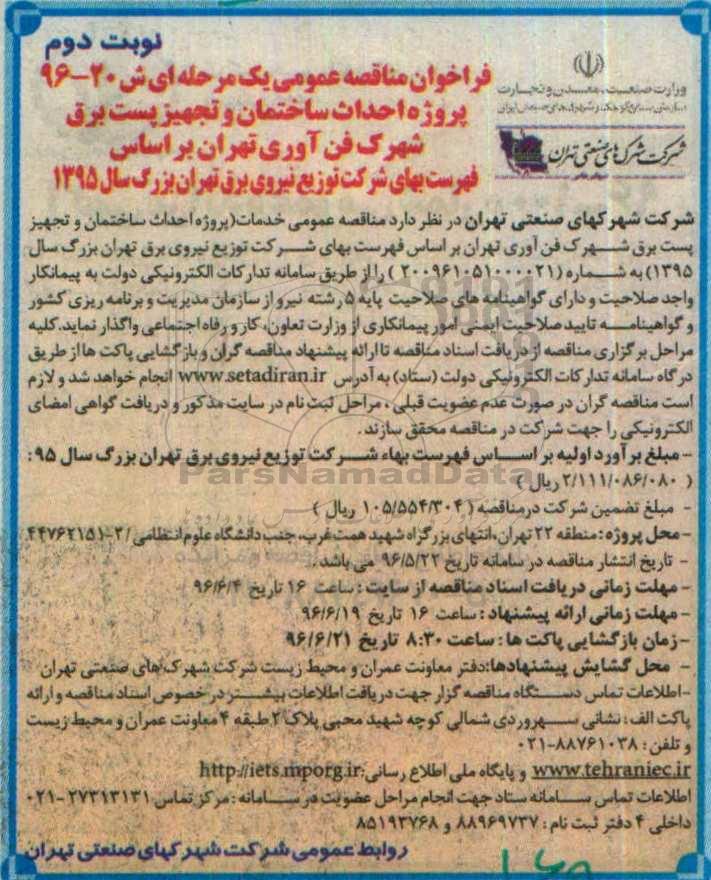 نوبت دوم
وزارت صنعت، معدن و تجارت
شرکت شهرک های صنعتی تهران
فراخوان مناقصه عمومی یک مرحله ای ش ۲۰-۹۶
پروژه احداث ساختمان و تجهیز پست برق
شهرک فن آوری تهران بر اساس
فهرست بهای شرکت توزیع نیروی برق تهران بزرگ سال ۱۳۹۵
شرکت شهرکهای صنعتی تهران در نظر دارد مناقصه عمومی خدمات(پروژه احداث ساختمان و تجهیز
پست برق شهرک فن آوری تهران بر اساس فهرست بهای شرکت توزیع نیروی برق تهران بزرگ سال
۱۳۹۵) به شماره (۲۰۰۹۶۱۰۵۱۰۰۰۰۲۱ ) را از طریق سامانه تدارکات الکترونیکی دولت به پیمانکار
واجد صلاحیت و دارای گواهینامه های صلاحیت پایه ۵ رشته نیرو از سازمان مدیریت و برنامه ریزی کشور
و گواهینامه تایید صلاحیت ایمنی امور پیمانکاری از وزارت تعاون، کار و رفاه اجتماعی واگذار نماید.کلیه
مراحل برگزاری مناقصه از دریافت اسناد مناقصه تا ارائه پیشنهاد مناقصه گران و بازگشایی پاکت ها از طریق
درگاه سامانه تدارکات الکترونیکی دولت (ستاد) به آدرس www.setadiran.ir انجام خواهد شد و لازم
است مناقصه گران در صورت عدم عضویت قبلی ، مراحل ثبت نام در سایت مذکور و دریافت گواهی امضای
الکترونیکی را جهت شرکت در مناقصه محقق سازند.
- مبلغ برآورد اولیه بر اساس فهرست بهاء شرکت توزیع نیروی برق تهران بزرگ سال ۹۵ :
( ۲/۱۱۱/۰۸۶/۰۸۰ ریال )
- مبلغ تضمین شرکت درمناقصه ( ۱۰۵/۵۵۴/۳۰۴ ریال )
- محل پروژه : منطقه ۲۲ تهران، انتهای بزرگراه شهید همت غرب، جنب دانشگاه علوم انتظامی /۳-۴۴۷۶۲۱۵۱
- تاریخ انتشار مناقصه در سامانه تاریخ ۹۶/۵/۲۲ می باشد .
- مهلت زمانی دریافت اسناد مناقصه از سایت : ساعت ۱۶ تاریخ ۹۶/۶/۴ )
- مهلت زمانی ارائه پیشنهاد : ساعت ۱۶ تاریخ ۹۶/۶/۱۹
- زمان بازگشایی پاکت ها : ساعت ۸:۳۰ تاریخ ۹۶/۶/۲۱
- محل گشایش پیشنهادها:دفتر معاونت عمران و محیط زیست شرکت شهرک های صنعتی تهران
-اطلاعات تماس دستگاه مناقصه گزار جهت دریافت اطلاعات بیشتر در خصوص اسناد مناقصه و ارائه
پاکت الف : نشانی سهروردی شمالی کوچه شهید محبی پلاک ۲ طبقه ۴ معاونت عمران و محیط زیست
و تلفن : ۸۸۷۶۱۰۳۸-۰۲۱
www.tehraniec.ir و پایگاه ملی اطلاع رسانی:http://iets.mporg.ir
اطلاعات تماس سامانه ستاد جهت انجام مراحل عضویت در سامانه : مرکز تماس ۲۷۳۱۳۱۳۱-۰۲۱
داخلی ۴ دفتر ثبت نام : ۸۸۹۶۹۷۳۷ و ۸۵۱۹۳۷۶۸
روابط عمومی شرکت شهرکهای صنعتی تهران
ParsNamadData